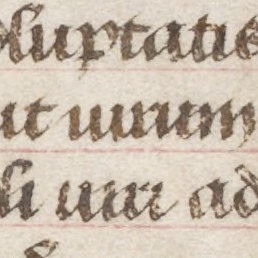 oluptatis
ut uirum
li uiri ad